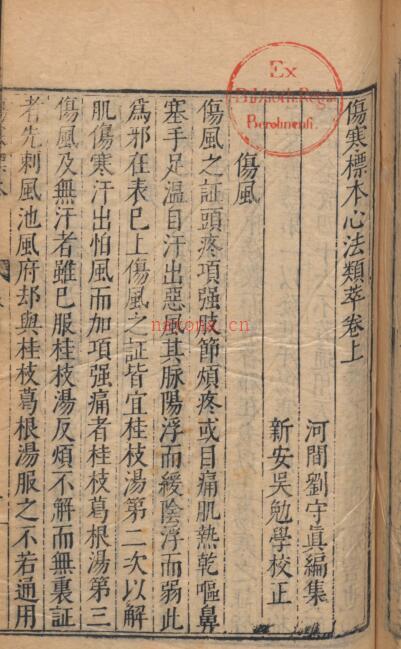 傷寒標本心法類萃卷上
河間劉守眞編集
新安吳勉學校正
傷風
傷風之証頭疼項强肢節煩疼或目痛肌熱乾嘔鼻
塞手足温自汗出惡風其脉陽浮而緩陰浮而弱此
爲邪在表巳上傷風之証皆宜桂枝湯第二次以解
肌傷寒汗出怕風而加項强痛者桂枝葛根湯第三
傷風及無汗者雖巳服桂枝湯反煩不解而無裏証
者先刺風池風府却與桂枝葛根湯服之不若通用
Ex
Biblioth. Regia
Berolinensi.